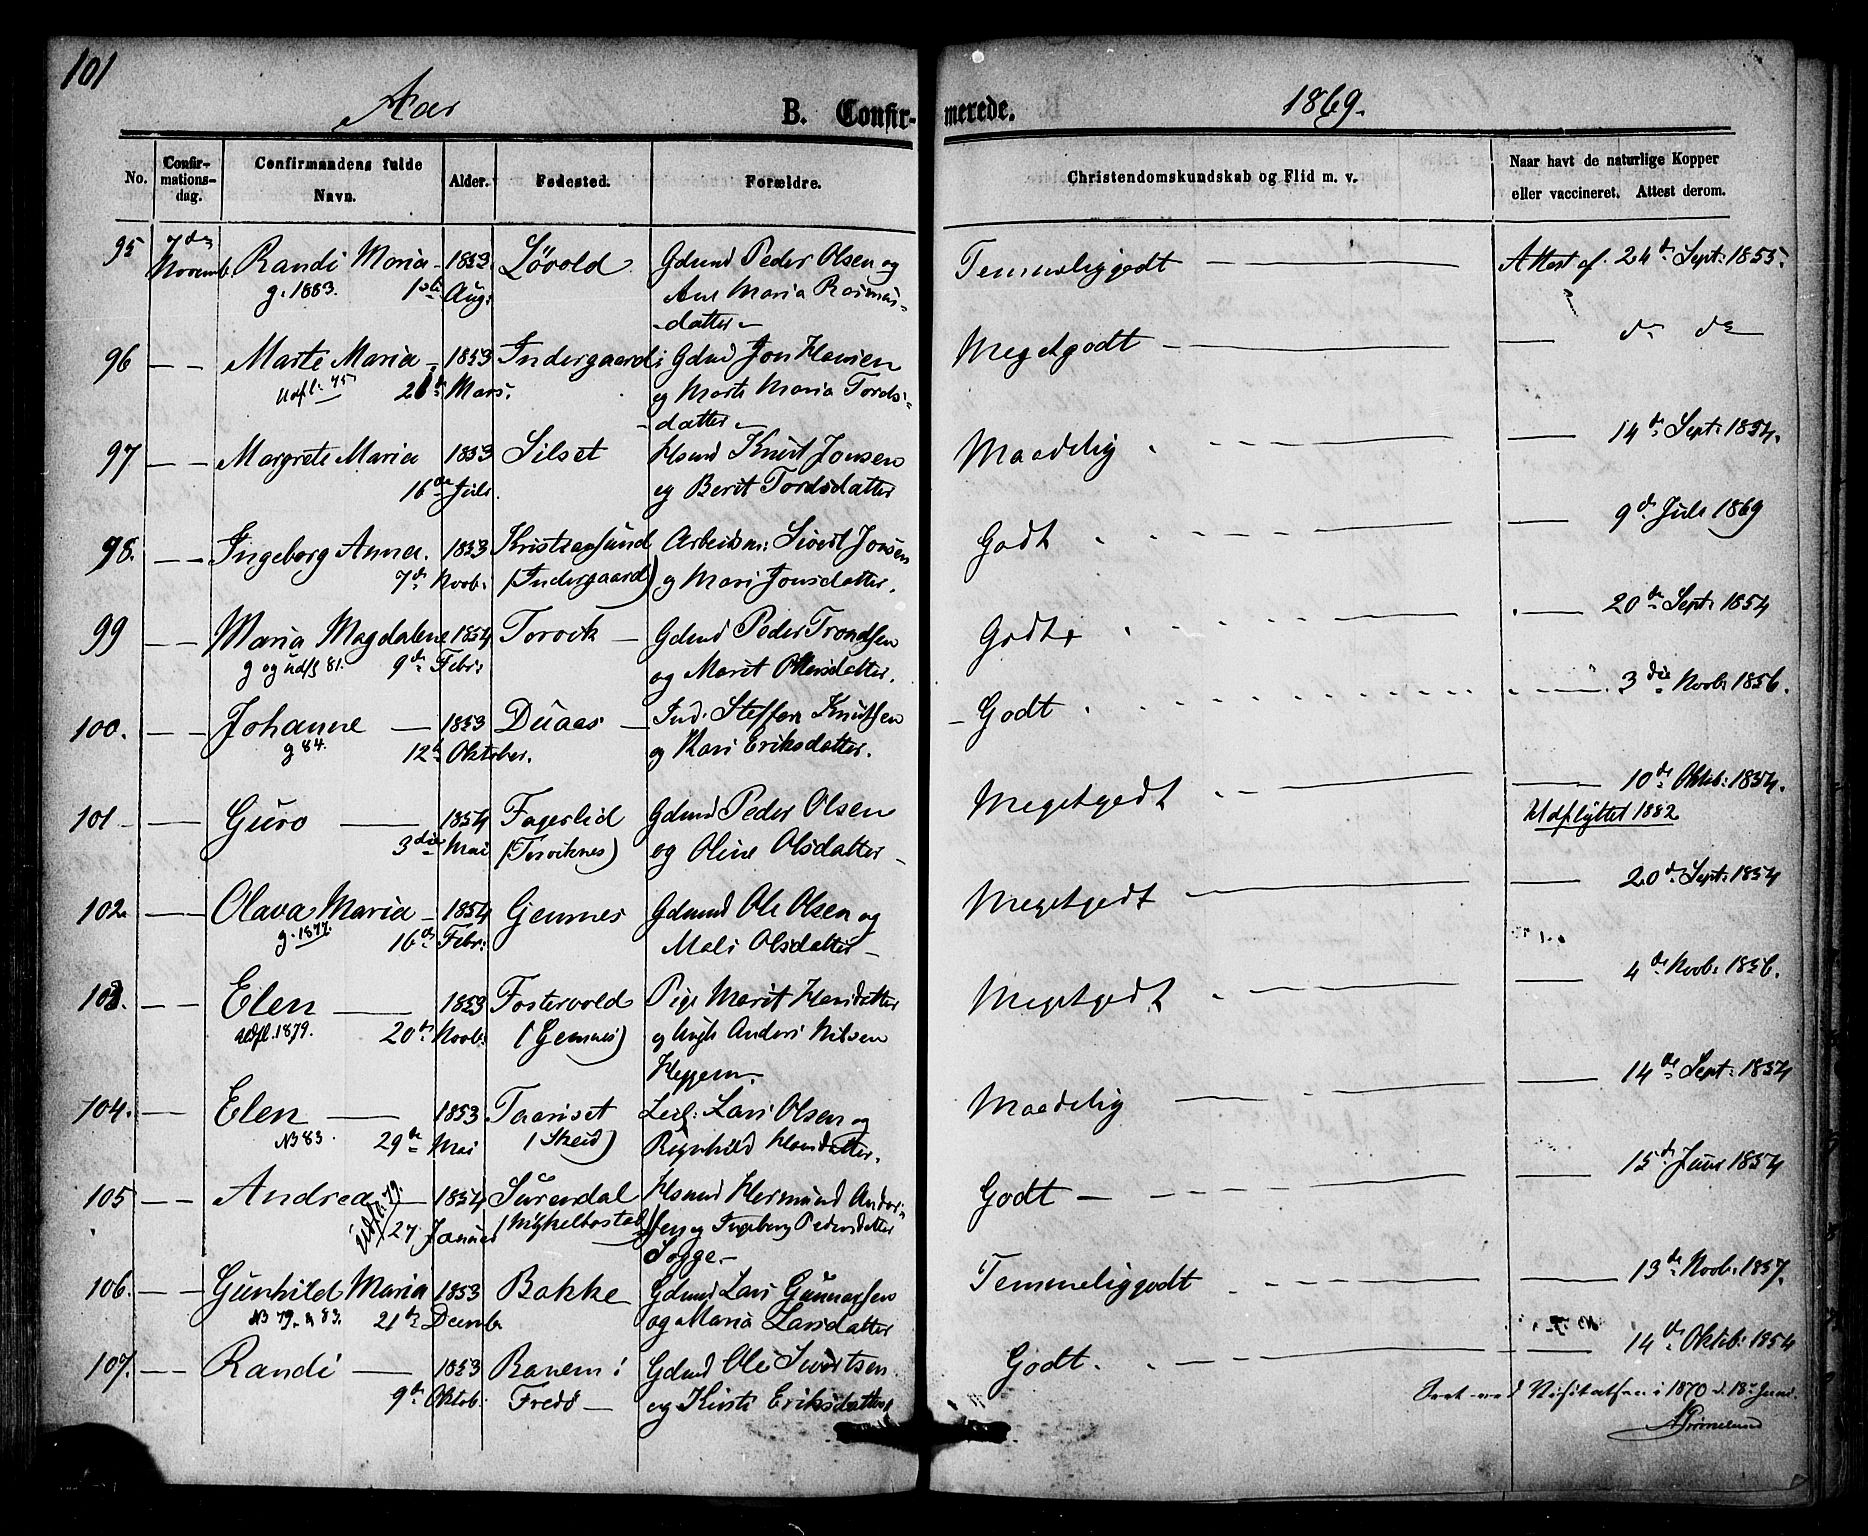 101
Aar B. Confir- merede. 1869.
No. Confir-mations-dag. Confirmandens fulde Navn. Alder. Fødested. Forældre. Christendomskundskab og Flid m. v. Naar havt de naturlige Kopper eller vaccineret. Attest derom.
95 7de Novemb. Randi Maria 1853 Lövold Gdmd Peder Olsen og Temmeliggodt Attest af 24de Sept: 1855.
g. 1883. 1ste Aug: Ane Maria Rasmus-
datter
96 Marte Maria 1853 Indergaard Gdmd Jon Hansen Megetgodt do do
Udfl. 75 26de Mars. og Marte Maria Tords-
datter
97 Margrete Maria 1853 Silset Hsmd Knut Jonsen Maadelig 14de Sept: 1854.
16de Juli og Berit Tordsdatter
98. Ingeborg Anna. 1853 Kristiansund Arbeidsm: Sivert Jonsen Godt 9de Juli 1869
7de Novb: (Indergaard) og Mari Jonsdatter.
99 Maria Magdalene 1854 Torvik Gdmd Peder Trondsen Godt 20de Sept: 1854
g og udfl 81. 9de Febr: og Marit Ottersdatter.
100. Johanne 1853 Duaas Ind. Steffen Knutsen Godt 3die Novb: 1856.
g 84. 12te Oktober. og Kari Eriksdatter.
101 Guro 1854 Fagerlid Gdmd Peder Olsen Megetgodt 10de Oktob: 1854.
3die Mai (Torviknes) og Oline Olsdatter Udflyttet 1882
102. Olava Maria 1854 Gemnes Gdmd Ole Olsen og Megetgodt 20de Sept: 1854
g. 1877. 16de Febr: Mali Olsdatter
103. Elen 1853 Fostervold Pige Marit Hansdatter Megetgodt 4de Novb: 1856.
Udfl. 1879. 20de Novb: (Gemnes) og Ungk Anders Nilsen
Heggem
104. Elen 1853 Taarset Leil: Lars Olsen og Maadelig 14de Sept: 1854
NB 83. 29de Mai (Skeid) Ragnhild Hansdatter.
105 Andrea 1854 Surendal Hsmd Hermund Anders- Godt 15de Juni 1854
Udfl. 79. 27 Januar (Mykelbostad) sen og Ingeborg Pedersdatter
Sogge
106. Gunhild Maria 1853 Bakke Gdmd Lars Gunnarsen Temmeliggodt 13de Novb: 1857.
NB 79. & 83. 21de Decemb. og Maria Larsdatter
107. Randi 1853 Banem i Gdmd Ole Ivertsen Godt. 14de Oktob: 1854
9de Oktob. Fredö og Kirsti Eriksdatter
Seet ved Visitatsen i 1870 d. 18de Juni.